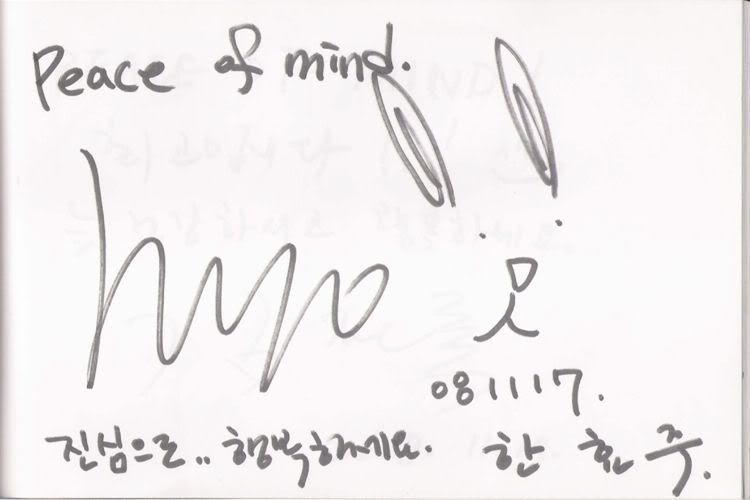 Peace of mind.
hyo
081117.
진심으로.. 행복하세요. 한 효 주.